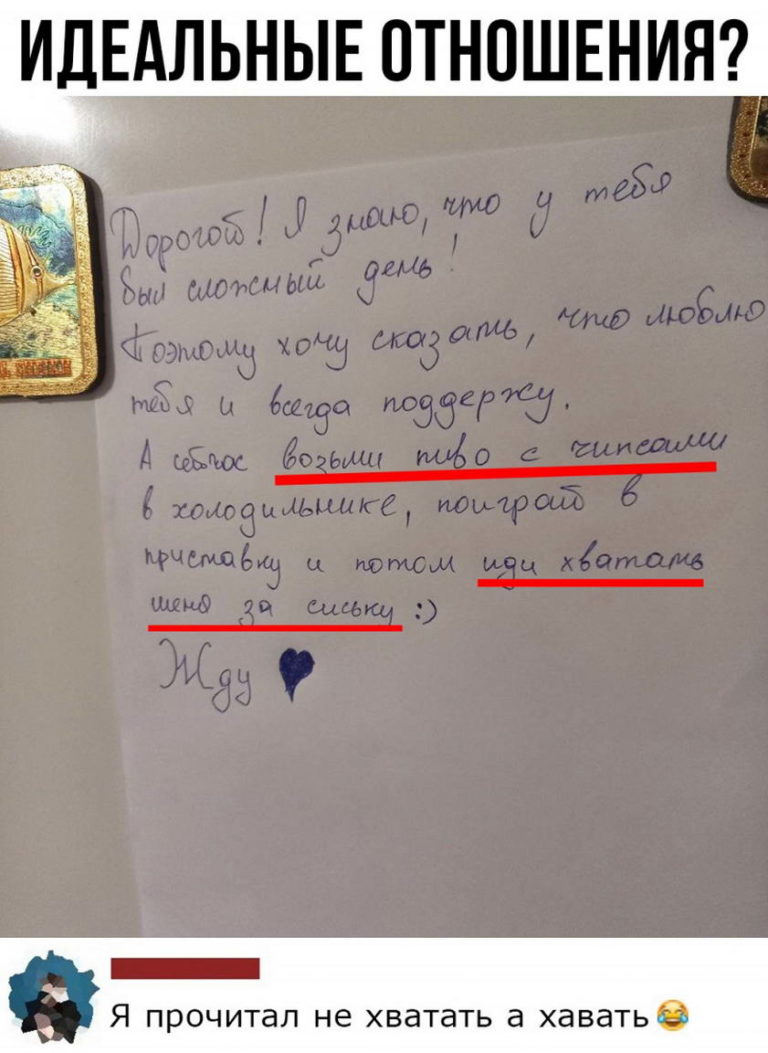 ИДЕАЛЬНЫЕ ОТНОШЕНИЯ?
Дорогой! Я знаю, что у тебя
был сложный день!
Поэтому хочу сказать, что люблю
тебя и всегда поддержу.
А сейчас возьми пиво с чипсами
в холодильнике, поиграй в
приставку и потом иди хватать
меня за сиську :)
Жду ♥
Я прочитал не хватать а хавать😂